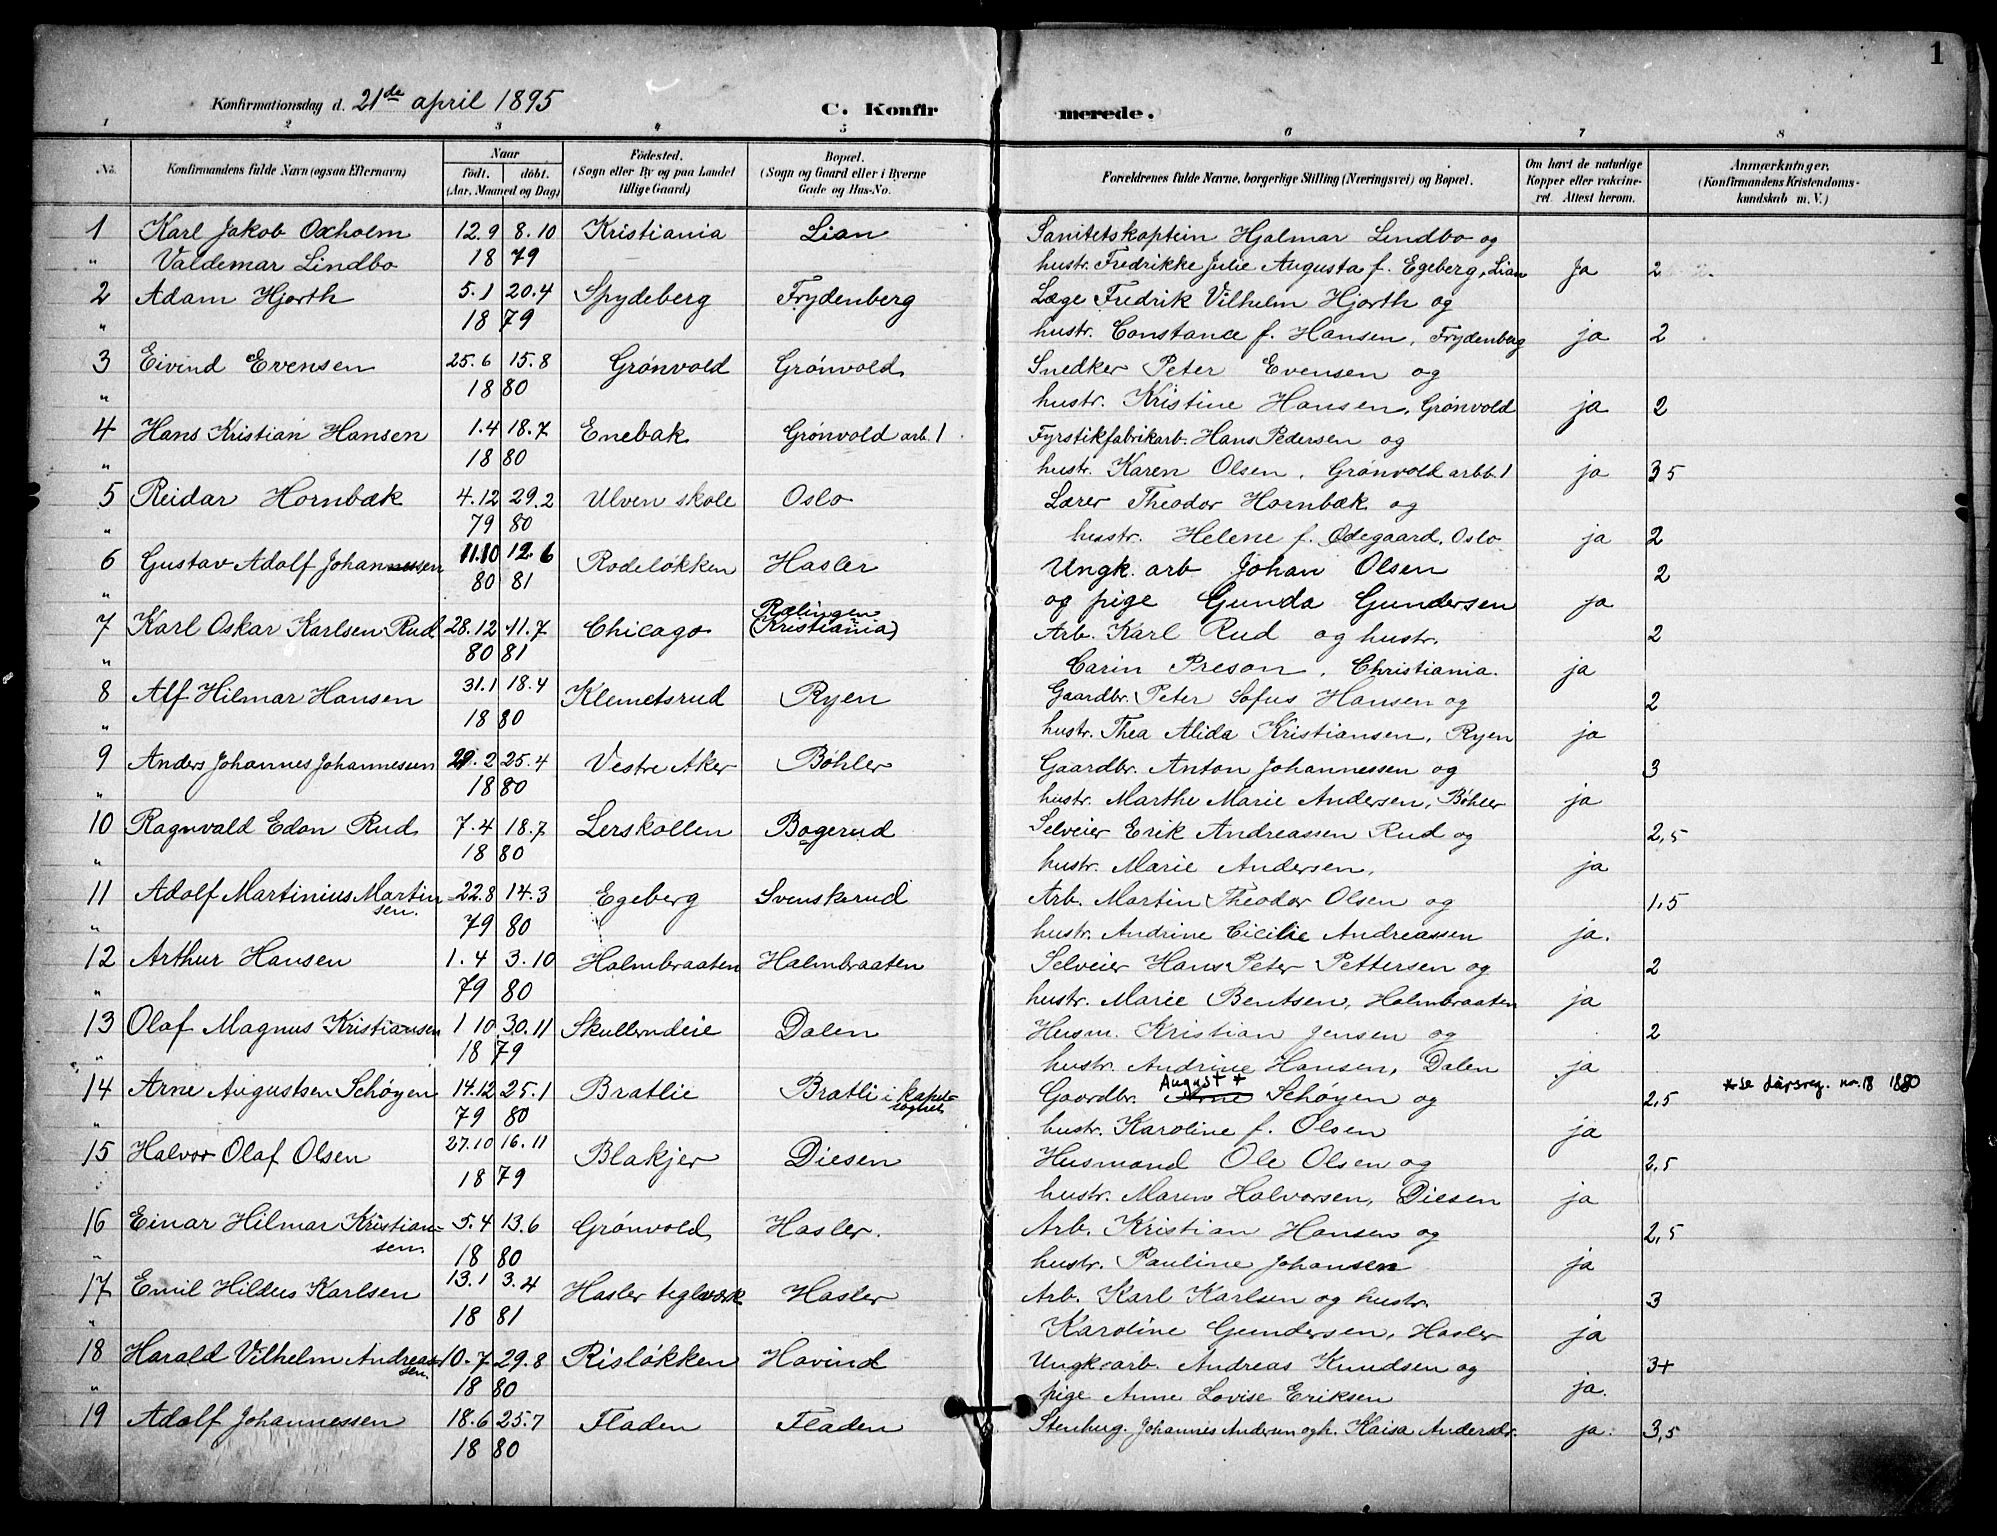 1
Konfirmationsdag d. 21de april 1895
C. Konfirmerede.
1 2 3 4 5 6 7 8
No. Konfirmandens fulde Navn (ogsaa Efternavn) Naar født. døbt. (Aar, Maaned og Dag) Fødested. (Sogn eller By og paa Landet tillige Gaard) Bopæl. (Sogn og Gaard eller i Byerne Gade og Hus-No. Forældrenes fulde Navne, borgerlige Stilling (Næringsvei) og Bopæl. Om havt de naturlige Kopper eller vakcineret. Attest herom. Anmærkninger. (Konfirmandens Kristendomskundskab m. V.)
1 Karl Jakob Oxholm 12.9 8.10 Kristiania Lian Sanitetskaptein Hjalmar Lindbo og
" Valdemar Lindbo 18 79 hustr. Fredrikke Julie Augusta f. Egeberg, Lian Ja 2
2 Adam Hjorth 5.1 20.4 Spydeberg Frydenberg Læge Fredrik Vilhelm Hjorth og
" 18 79 hustr. Constance f. Hansen, Frydenberg ja 2
3 Eivind Evensen 25.6 15.8 Grønvold Grønvold Snedker Peter Evensen og
" 18 80 hustr. Kristine Hansen, Grønvold ja 2
4 Hans Kristian Hansen 1.4 18.7 Enebak Grønvold arb. 1 Fyrstikfabrikarb. Hans Pedersen og
" 18 80 hustr. Karen Olsen, Grønvold arbb. 1 ja 3 5
5 Reidar Hornbæk 4.12 29.2 Ulven skole Oslo Lærer Theodor Hornbæk og
" 79 80 hustr. Helene f. Ødegaard, Oslo ja 2
6 Gustav Adolf Johannessen 11.10 12.6 Rodeløkken Hasler Ungk. arb Johan Olsen
" 80 81 og pige Gunda Gundersen ja 2
7 Karl Oskar Karlsen Rud 28.12 11.7 Chicago Rælingen (Kristiania) Arb. Karl Rud og hustr. 2
" 80 81 Carin Preson, Christiania. ja
8 Alf Hilmar Hansen 31.1 18.4 Klemetsrud Ryen Gaardbr. Peter Sofus Hansen og 2
" 18 80 hustr. Thea Alida Kristiansen, Ryen ja
9 Anders Johannes Johannessen .2 25.4 Vestre Aker Bøhler Gaardbr. Anton Johannessen og 3
" 18 80 hustr. Marthe Marie Andersen, Bøhler ja
10 Ragnvald Edon Rud 7.4 18.7 Lerskallen Bogerud Selveier Erik Andreassen Rud og 2,5
" 18 80 hustr. Marie Andersen, ja
11 Adolf Martinius Martinsen. 22.8 14.3 Egeberg Svenskerud Arb. Martin Theodor Olsen og 1,5
" 79 80 hustr. Andrine Cicilie Andreassen ja.
12 Arthur Hansen 1.4 3.10 Holmbraaten Holmbraaten Selveier Hans Peter Pettersen og 2
" 79 80 hustr. Marie Bentsen, Holmbraaten ja
13 Olaf Magnus Kristiansen 1 10 30.11 Skullerudeie Dalen Husm. Kristian Jensen og 2
" 18 79 hustr. Andrine Hansen, Dalen ja
14 Arne Augustsen Schøyen 14.12 25.1 Bratlie Bratli i kapelsognet Gaardbr. Arne August * Schøyen og 2,5 * se dåpsreg. nr. 18 1880
" 79 80 hustr. Karoline f. Olsen ja
15 Halvor Olaf Olsen 27.10 16.11 Blakjer Diesen Husmand Ole Olsen og 2,5
18 79 hustr. Maren Halvorsen, Diesen ja
16 Einar Hilmar Kristiansen. 5.4 13.6 Grønvold Hasler. Arb. Kristian Hansen og 2,5
" 18 80 hustr. Pauline Johansen ja
17 Emil Hildus Karlsen 13.1 3.4 Hasler teglværk Hasler Arb. Karl Karlsen og hustr. 3
" 18 81 Karoline Gundersen, Hasler ja
18 Harald Vilhelm Andreassen. 10.7 29.8 Risløkken Hovind Ungk. arb. Andreas Knudsen og 3+
" 18 80 pige Anne Lovise Eriksen ja.
19 Adolf Johannessen 18.6 25.7 Fladen Fladen Stenhug. Johannes Andersen og h. Kaisa Andersdr. ja. 3,5
18 80